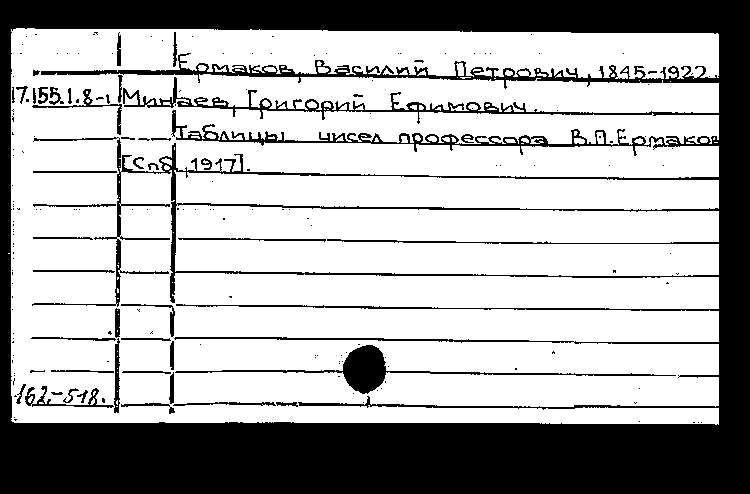 Ермаков, Василий Петрович, 1845-1922.
17.155.1.8-1 Минаев, Григорий Ефимович.
Таблицы чисел профессора В.П.Ермаков
[Спб., 1917].
162.-518.